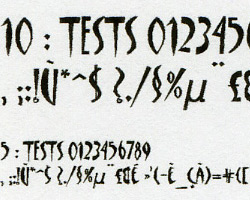 10 : TESTS 0123456
, ;:!Ù*^$ ?./§%µ ¨ £
5 : TESTS 0123456789
, ;:!Ù*^$ ?./§%µ ¨ £